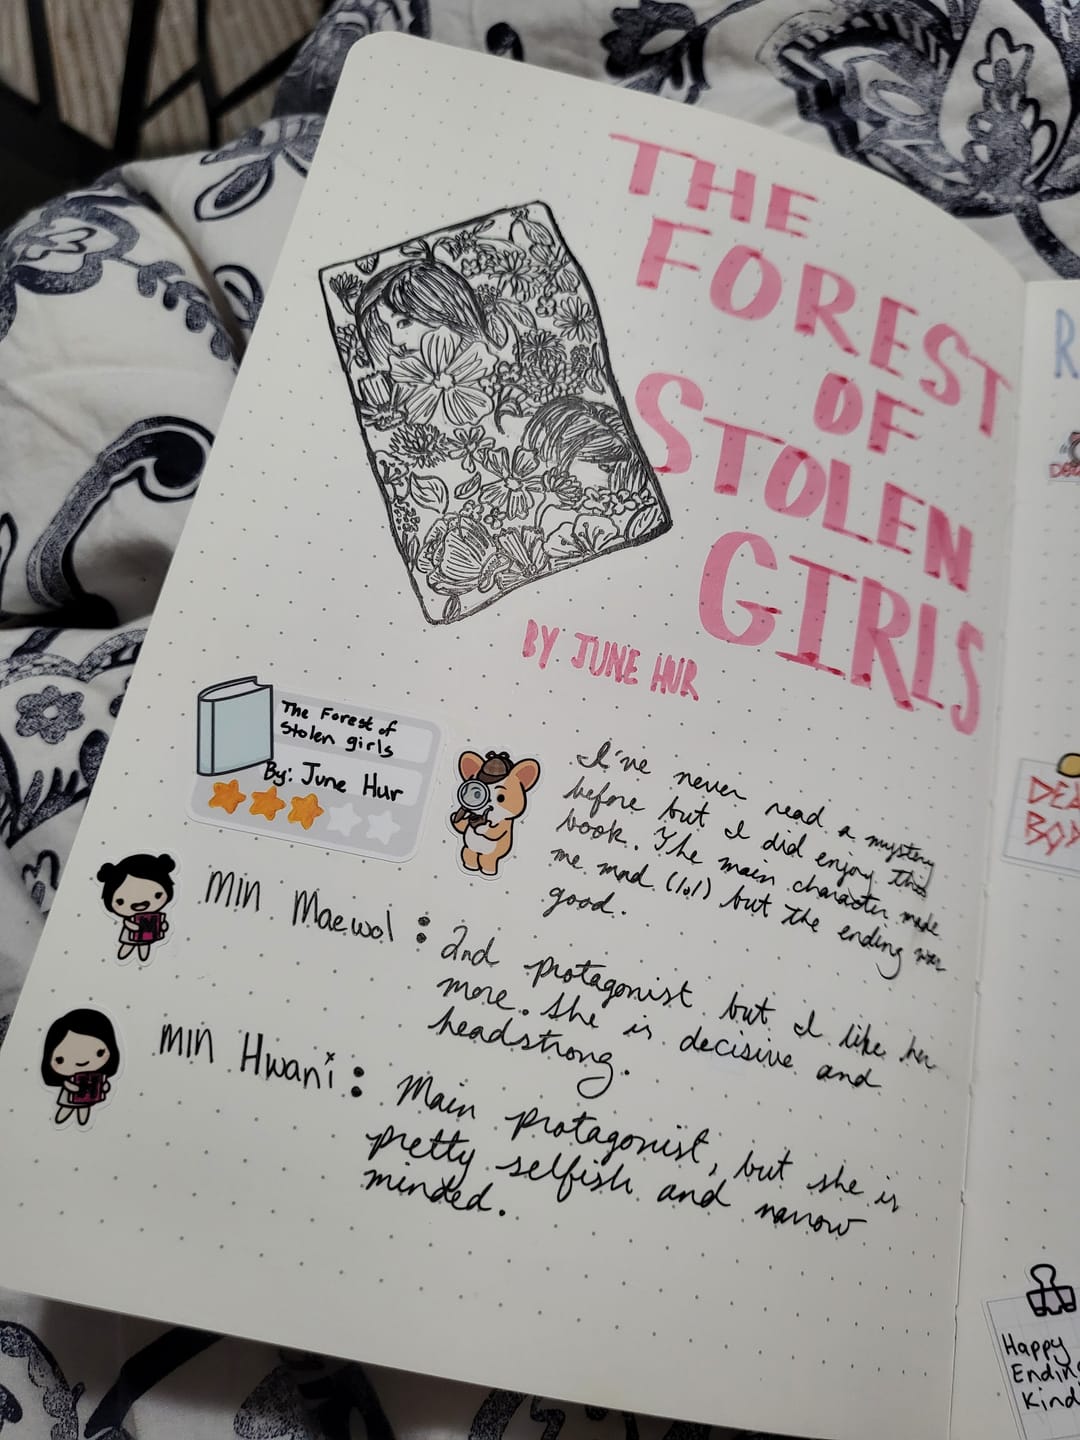 THE
FOREST
OF
STOLEN
GIRLS
BY JUNE HUR
The Forest of
Stolen girls
By: June Hur
I've never read a mystery
before but I did enjoy this
book. The main character made
me mad (lol) but the ending was
good.
Min Maewol :
2nd protagonist but I like her
more. She is decisive and
headstrong.
Min Hwani :
Main protagonist, but she is
pretty selfish and narrow
minded.
R
DEA
BOY
Happy
Endin
Kind